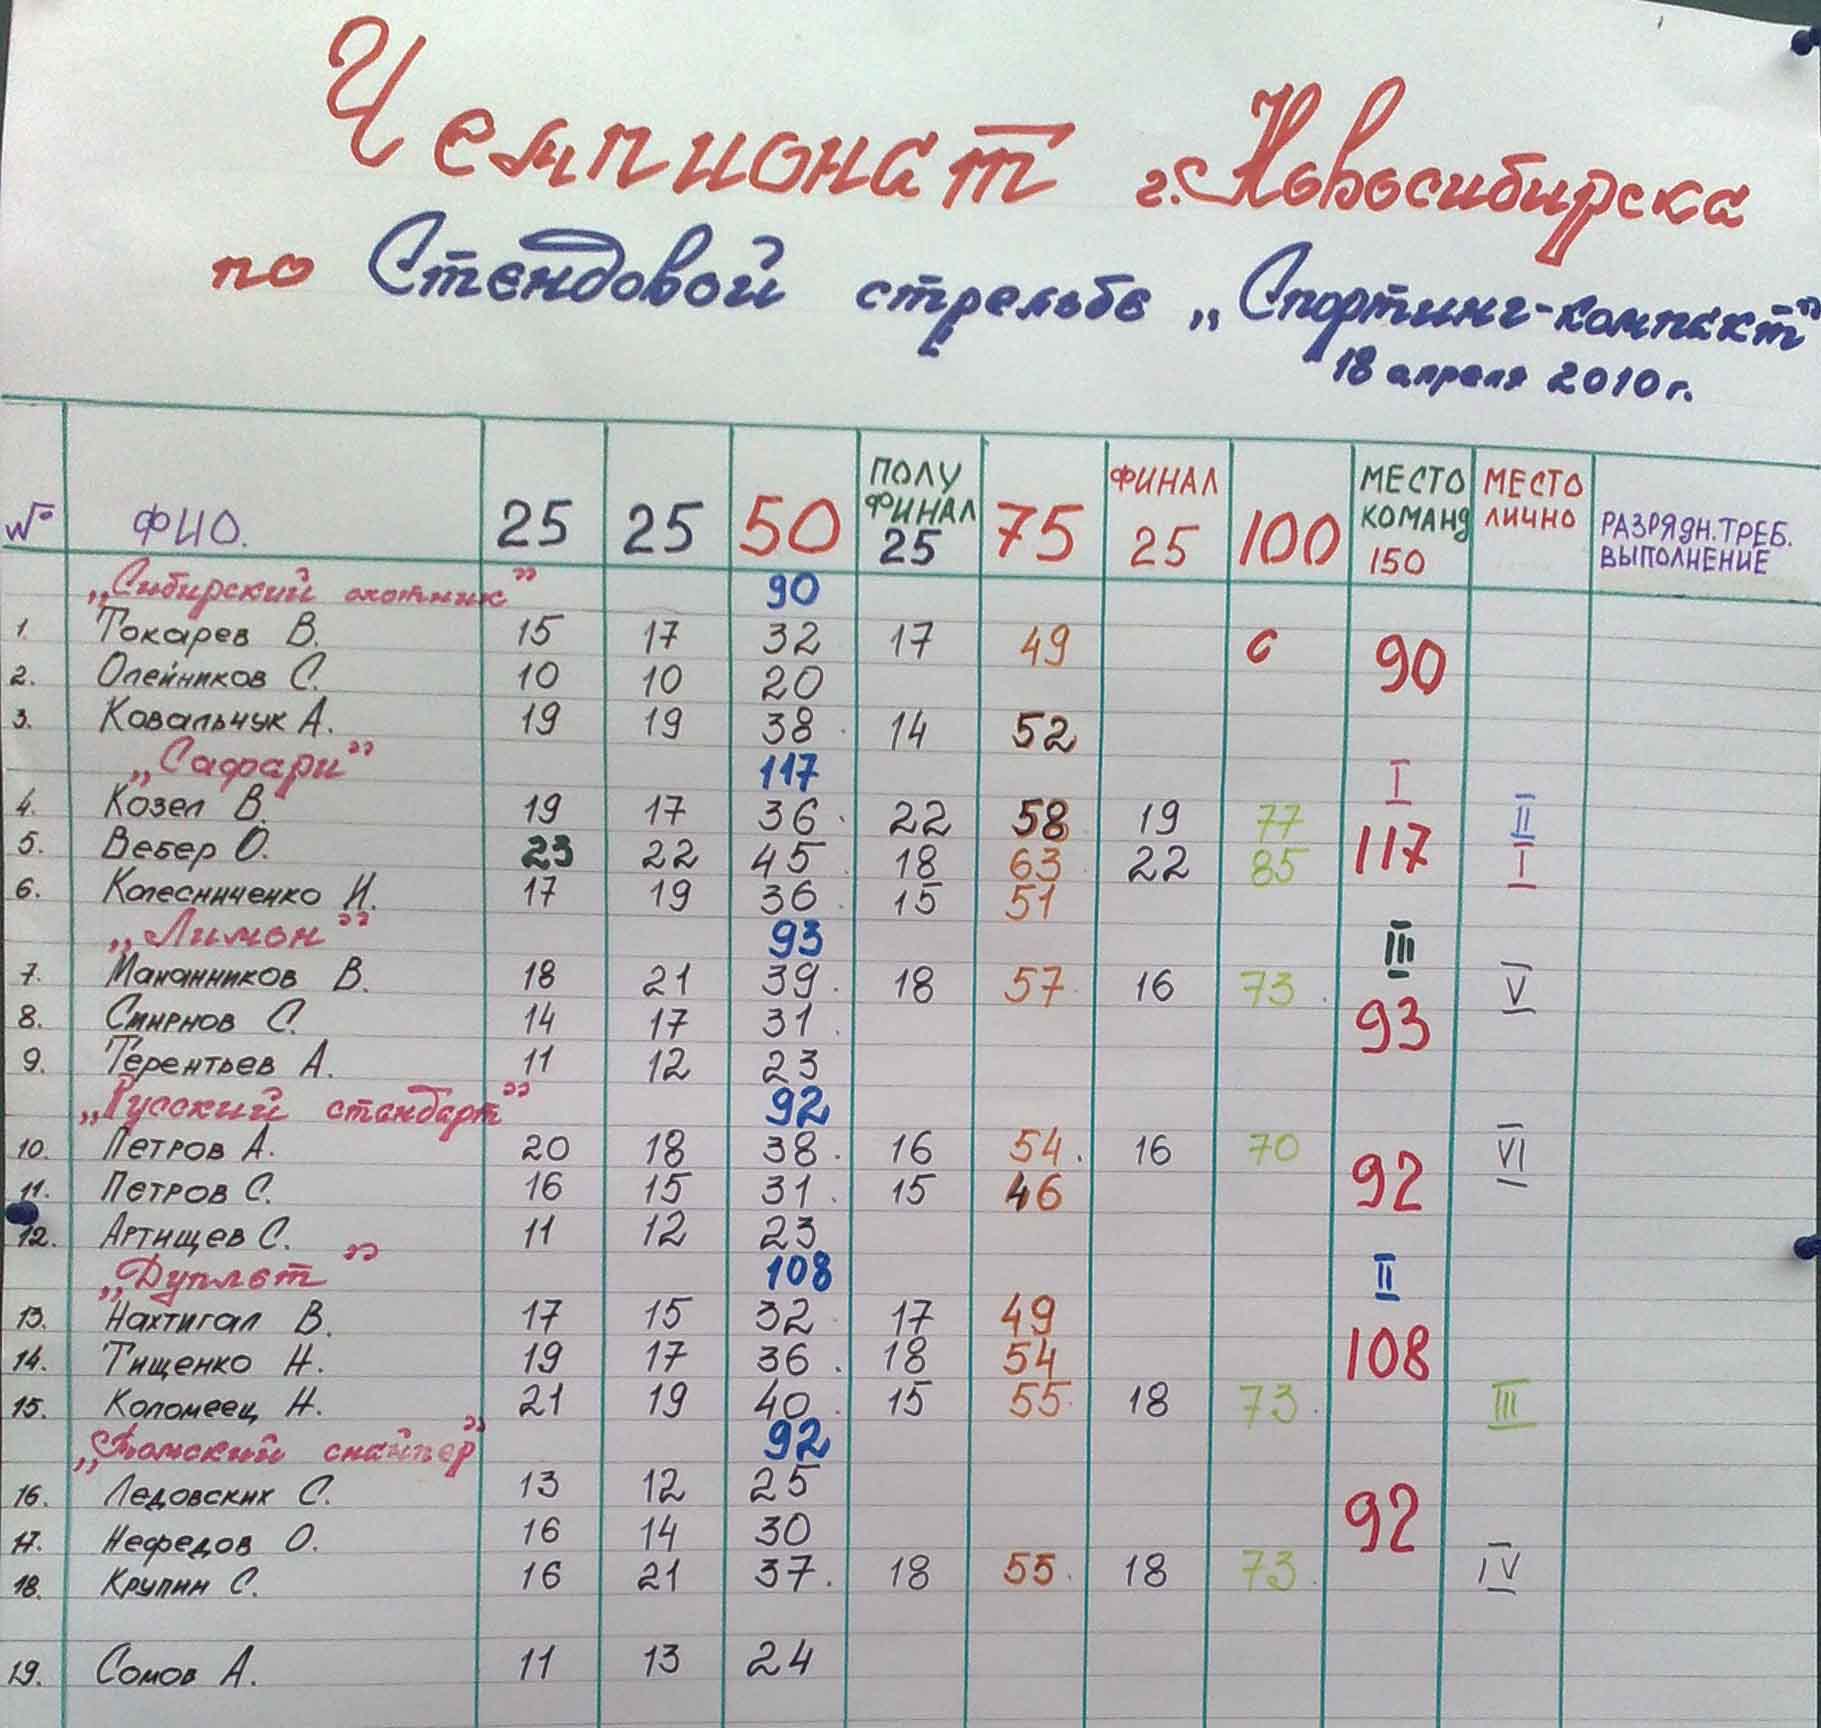 Чемпионат г. Новосибирска
по Стендовой стрельбе „Спортинг-компакт"
18 апреля 2010 г.
№ ФИО. 25 25 50 ПОЛУ ФИНАЛ 25 75 ФИНАЛ 25 100 МЕСТО КОМАНД 150 МЕСТО ЛИЧНО РАЗРЯДН. ТРЕБ. ВЫПОЛНЕНИЕ
„Сибирский охотник" 90
1. Токарев В. 15 17 32 17 49 90
2. Олейников С. 10 10 20
3. Ковальчук А. 19 19 38 14 52
„Сафари" 117 I
4. Козел В. 19 17 36 22 58 19 77 II
5. Вебер О. 23 22 45 18 63 22 85 117 I
6. Колесниченко И. 17 19 36 15 51
„Лимон" 93 III
7. Мананников В. 18 21 39 18 57 16 73 V
8. Смирнов С. 14 17 31 93
9. Терентьев А. 11 12 23
„Русский стандарт" 92
10. Петров А. 20 18 38 16 54 16 70 VI
11. Петров С. 16 15 31 15 46 92
12. Артищев С. 11 12 23
„Дуплет" 108 II
13. Нахтигал В. 17 15 32 17 49
14. Тищенко Н. 19 17 36 18 54 108
15. Коломеец Н. 21 19 40 15 55 18 73 III
„Томский снайпер" 92
16. Ледовских С. 13 12 25 92
17. Нефедов О. 16 14 30
18. Крупин С. 16 21 37 18 55 18 73 IV
19. Сомов А. 11 13 24